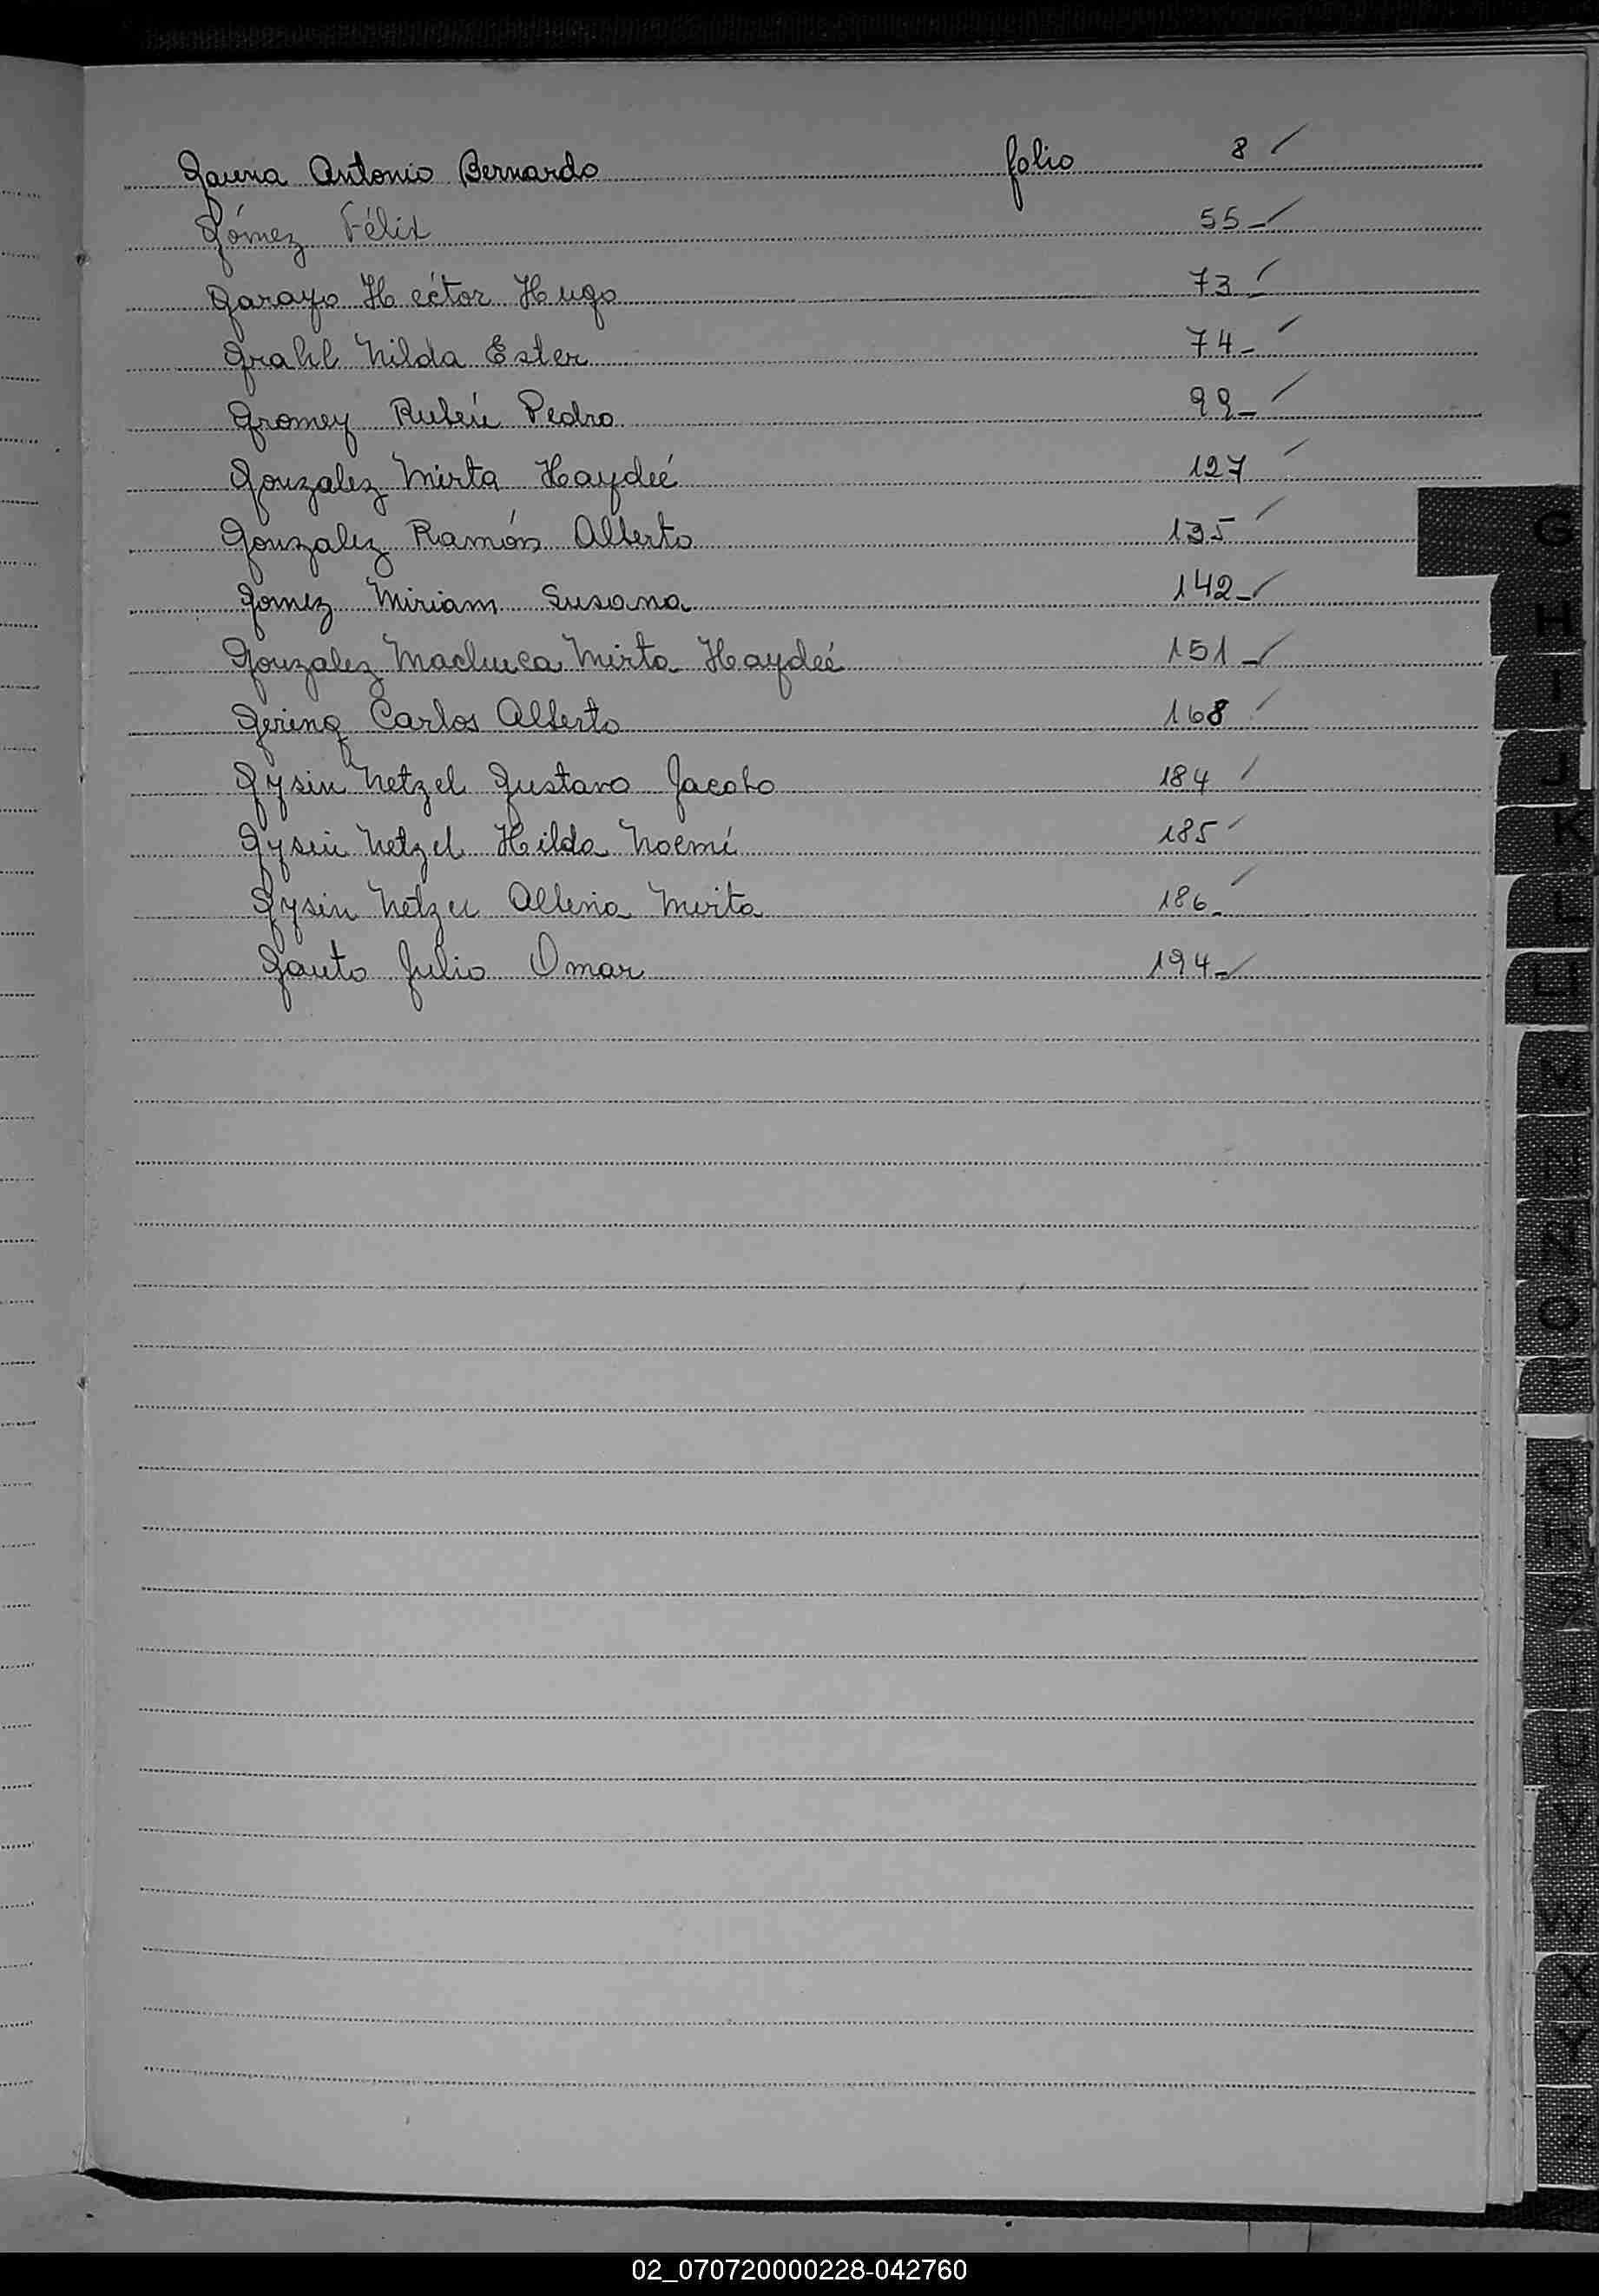 Gauna Antonio Bernardo folio 8
Gómez Félix 55
Garayo Héctor Hugo 73
Grahl Nilda Ester 74
Gromey Rubén Pedro 99
Gonzalez Mirta Haydeé 127
Gonzalez Ramón Alberto 135
Gomez Miriam Susana 142
Gonzalez Machuca Mirta Haydeé 151
Gering Carlos Alberto 168
Gysin Netzel Gustavo Jacobo 184
Gysin Netzel Hilda Noemí 185
Gysin Netzel Mirta 186
Gauto Julio Omar 194
G
H
I
J
K
L
LL
M
N
Ñ
O
P
Q
R
S
T
U
V
W
X
Y
Z
02_070720000228-042760